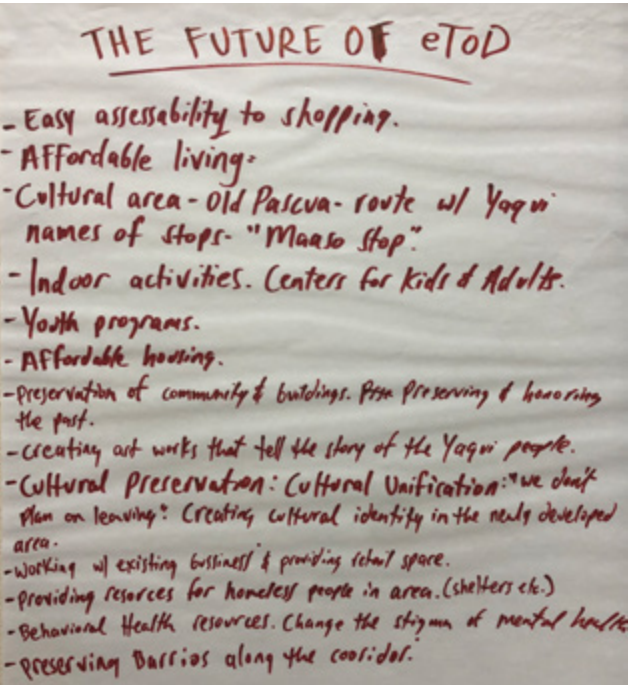 THE FUTURE OF eTOD
- Easy assessability to shopping.
- Affordable living.
- Cultural area - Old Pascua - route w/ Yaqui
names of stops - "Maaso Stop".
- Indoor activities. Centers for Kids & Adults.
- Youth programs.
- Affordable housing.
- Preservation of community & buildings. Preserving & honoring
the past.
- Creating art works that tell the story of the Yaqui people.
- Cultural Preservation: Cultural Unification: "we don't
plan on leaving". Creating cultural identity in the newly developed
area.
- Working w/ existing bussiness & providing retail space.
- Providing resorces for homeless people in area. (shelters etc.)
- Behavioral Health resources. Change the stigma of mental health
- Preserving Barrios along the cooridor.